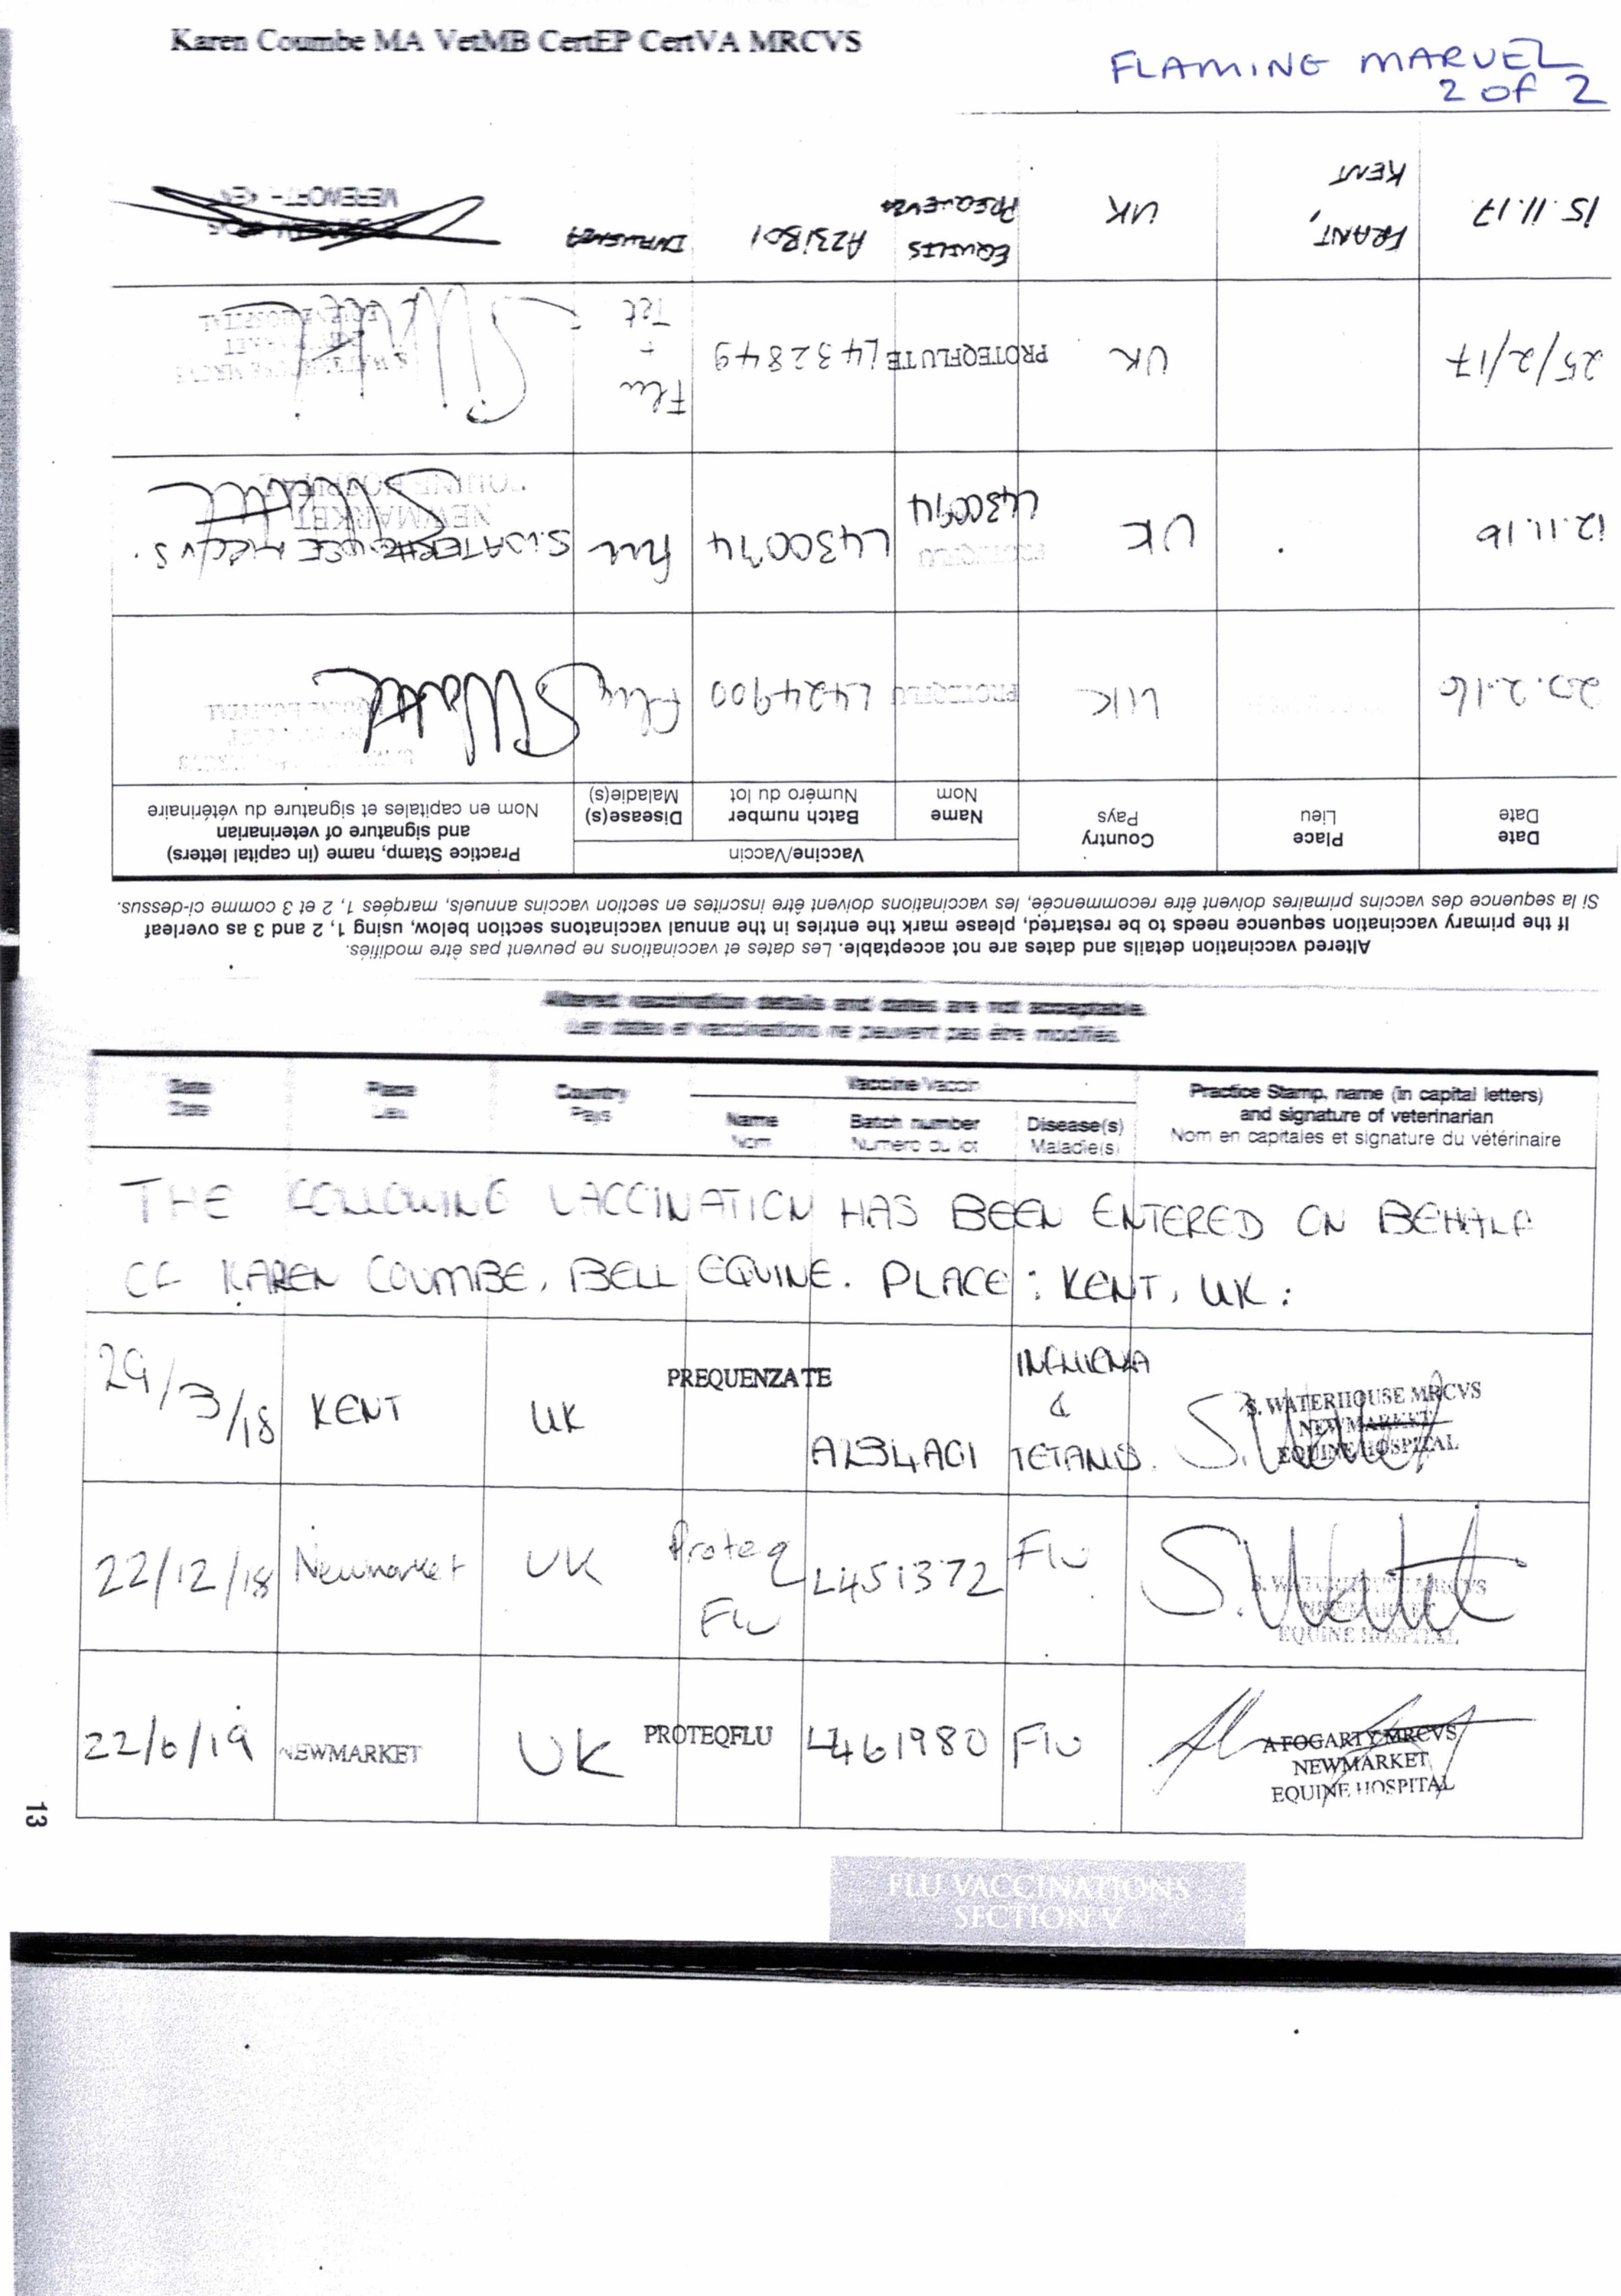 Karen Coumbe MA VetMB CertEP CertVA MRCVS
FLAMING MARVEL
2 of 2
Altered vaccination details and dates are not acceptable. Les dates et vaccinations ne peuvent pas être modifiés.
If the primary vaccination sequence needs to be restarted, please mark the entries in the annual vaccinatons section below, using 1, 2 and 3 as overleaf
Si la sequence des vaccins primaires doivent être recommencée, les vaccinations doivent être inscrites en section vaccins annuels, marqées 1, 2 et 3 comme ci-dessus.
Date Place Country Vaccine/Vaccin Practice Stamp, name (in capital letters)
and signature of veterinarian
Date Lieu Pays Name Batch number Disease(s) Nom en capitales et signature du vétérinaire
Nom Numéro du lot Maladie(s)
20.2.16 UK PROTEQFLU L424900 Flu
12.11.16 UK PROTEQFLU L430074 L430074 Flu S. WATERHOUSE MRCVS
NEWMARKET
EQUINE HOSPITAL
25/2/17 UK PROTEQFLUTE L432849 Flu + Tet
S. WATERHOUSE MRCVS
NEWMARKET
EQUINE HOSPITAL
15.11.17 FRANT, KENT UK EQUILIS PREQUENZA A231B01 INFLUENZA
Altered vaccination details and dates are not acceptable.
Les dates et vaccinations ne peuvent pas être modifiés.
Date Place Country Vaccine/Vaccin Practice Stamp, name (in capital letters)
Date Lieu Pays Name Batch number Disease(s) and signature of veterinarian
Nom Numéro du lot Maladie(s) Nom en capitales et signature du vétérinaire
THE FOLLOWING VACCINATION HAS BEEN ENTERED ON BEHALF
OF KAREN COUMBE, BELL EQUINE. PLACE : KENT, UK :
29/3/18 KENT UK PREQUENZA TE A234A01 INFLUENZA & TETANUS.
S. WATERHOUSE MRCVS
NEWMARKET
EQUINE HOSPITAL
22/12/18 Newmarket UK Proteq Flu L451372 Flu
S. WATERHOUSE MRCVS
NEWMARKET
EQUINE HOSPITAL
22/6/19 NEWMARKET UK PROTEQFLU L461980 Flu
A FOGARTY MRCVS
NEWMARKET
EQUINE HOSPITAL
13
FLU VACCINATIONS
SECTION V